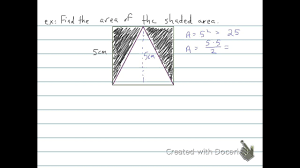 ex: Find the area of the shaded area.
A = 5² = 25
A = 5·5/2 =
5cm
5cm
Created with Doceri